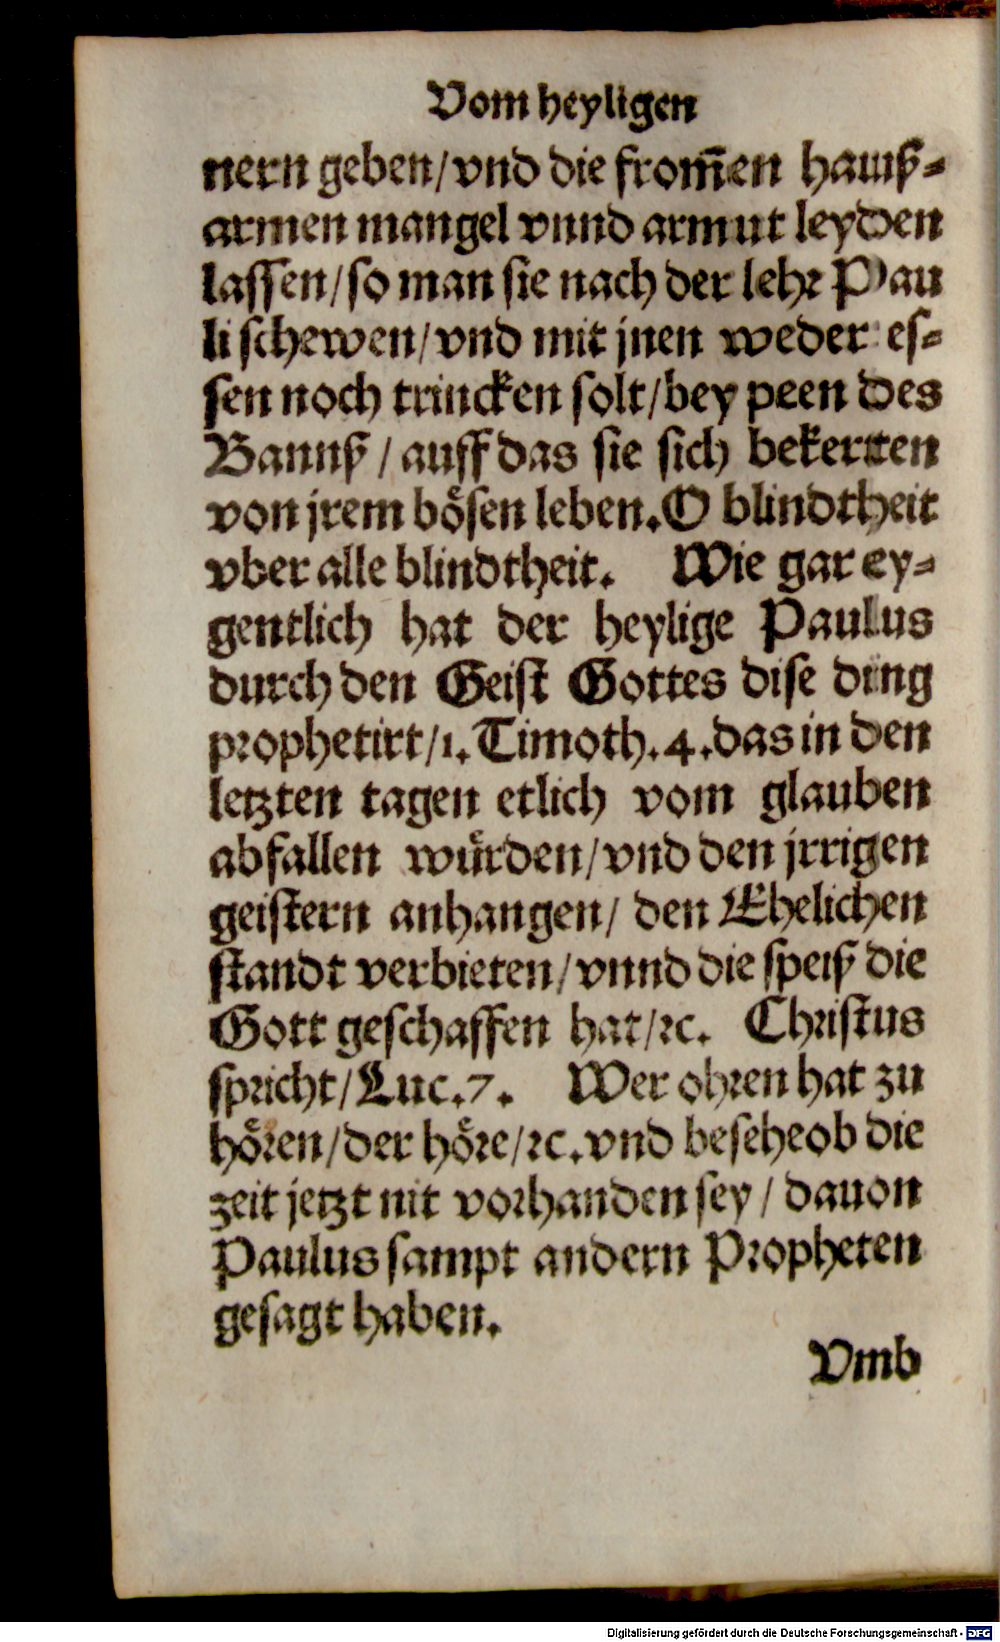 Vom heyligen
nern geben/vnd die from̄en hauß-
armen mangel vnnd armut leyden
lassen/so man sie nach der lehr Pau
li schewen/vnd mit jnen weder es-
sen noch trincken solt/bey peen des
Bannß/auff das sie sich bekerten
von jrem bösen leben. O blindtheit
vber alle blindtheit. Wie gar ey-
gentlich hat der heylige Paulus
durch den Geist Gottes dise ding
prophetirt/1. Timoth. 4. das in den
letzten tagen etlich vom glauben
abfallen würden/vnd den jrrigen
geistern anhangen/den Ehelichen
standt verbieten/vnnd die speiß die
Gott geschaffen hat/ꝛc. Christus
spricht/Luc. 7. Wer ohren hat zu
hören/der höre/ꝛc. vnd besehe ob die
zeit jetzt nit vorhanden sey/dauon
Paulus sampt andern Propheten
gesagt haben.
Vmb
Digitalisierung gefördert durch die Deutsche Forschungsgemeinschaft - DFG